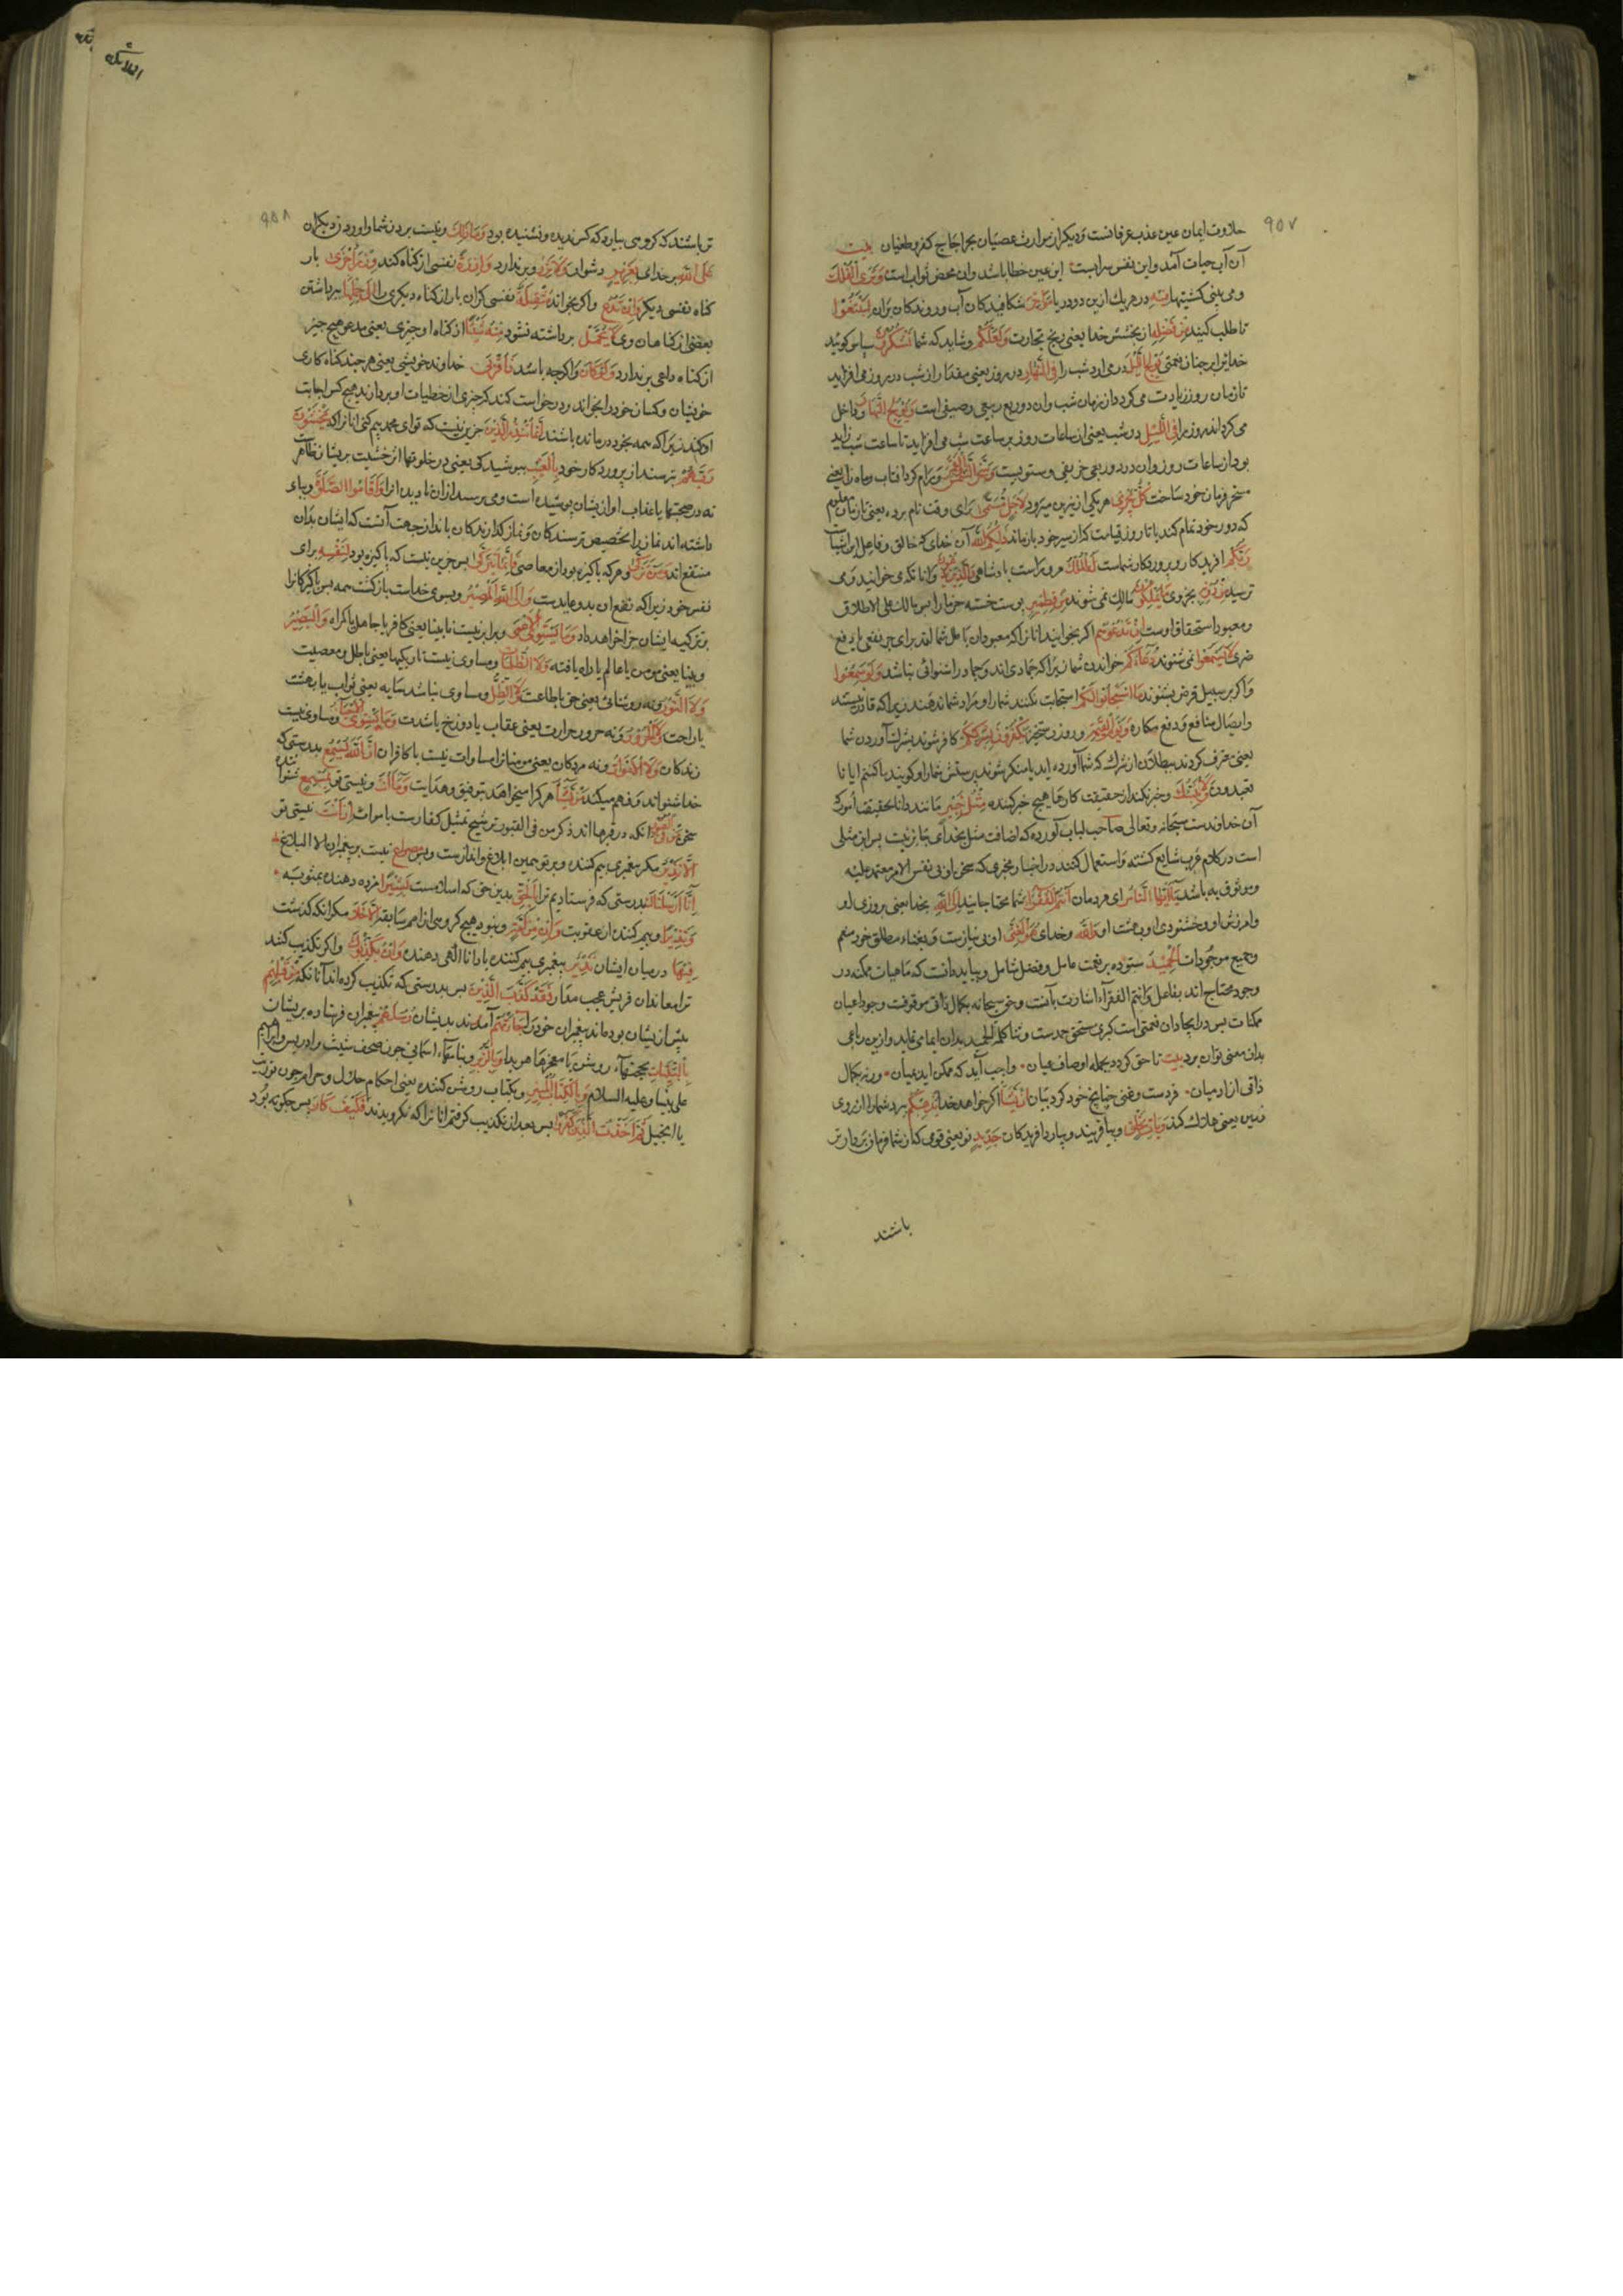 ٩٥٧
حلاوت ایمان عین عذب عرفانست و دیکر از مرارت عصیان بحر اجاج کفر و طغیان بیت
آن آب حیات آمد و این نفس سرابست این عین خطا باشد و ان محض ثواب است وَتَرَی الْفُلْكَ
و می بینی کشتیها فِیهِ در هر یك ازین دو دریا مَوَاخِرَ شکافندکان آب و روندکان بران لِتَبْتَغُوا
تا طلب کنید مِن فَضْلِهِ از بخشش خدا یعنی ربح تجارت وَلَعَلَّکُمْ و شاید که شما تَشْکُرُونَ سپاس کوئید
خدایرا بر چنان نعمتی یُولِجُ اللَّیْلَ در می ارد شب را فِی النَّهَارِ در روز یعنی مقدار از شب در روز می افزاید
تا زمان روز زیادت می کردد از زمان شب وان دور ربع ربیعی و صیفی است وَیُولِجُ النَّهَارَ و داخل
می کرداند روز را فِی اللَّیْلِ در شب یعنی از ساعات روز بر ساعت شب می افزاید تا ساعت شب زاید
بود از ساعات روز وان در دو ربع خریفی و شتویست وَسَخَّرَ الشَّمْسَ وَالْقَمَرَ و رام کرد افتاب و ماه را یعنی
مسخر فرمان خود ساخت کُلٌّ یَجْرِی هر یکی ازین میرود لِأَجَلٍ مُسَمًّی برای وقت نام برده یعنی تا زمان معلوم
که دور خود تمام کند یا تا روز قیامت که از سیر خود باز ماند ذَلِکُمُ اللهُ آن خدای که خالق و فاعل این اشیاست
رَبُّکُمْ افریدکار و پروردکار شماست لَهُ الْمُلْكُ مرو راست پادشاهی وَالَّذِینَ تَدْعُونَ وانانکه می خوانید و می
پرستید مِن دُونِهِ بجز وی مَا یَمْلِکُونَ مالك نمی شوند مِن قِطْمِیرٍ پوست خسته خرما را پس مالك علی الاطلاق
و معبود استحقاق اوست إِن تَدْعُوهُمْ اکر بخوانید انانرا که معبودان باطل شما اند برای جر نفعی یا دفع
ضری لَا یَسْمَعُوا نمی شنوند دُعَاءَکُمْ خواندن شما زیرا که جمادی اند و جماد را شنوائی نباشد وَلَوْ سَمِعُوا
و اکر بر سبیل فرض بشنوند مَا اسْتَجَابُوا لَکُمْ استجابت نکنند شما را و مراد شما ندهند زیرا که قادر نیستند
وایصال منافع و دفع مکاره وَیَوْمَ الْقِیَمَةِ و روز رستخیز یَکْفُرُونَ بِشِرْکِکُمْ کافر شوند بشرك آوردن شما
یعنی معترف کردند ببطلان از شرك که شما آورده اید یا منکر شوند پرستش شما را و کویند ما کنتم ایانا
تعبدون وَلَا یُنَبِّئُكَ و خبر نکند از حقیقت کارها هیچ خبر کننده مِثْلُ خَبِیرٍ مانند دانا بحقیقت امور
آن خداوندست سبحانه و تعالی صاحب لباب آورده که اضافت مثل بخدای جایز نیست پس این مثلی
است در کلام عرب شایع کشته و استعمال کنند در اخبار مخبری که سخن او فی نفس الامر معتمد علیه
و موثوق به باشد یَاأَیُّهَا النَّاسُ ای مردمان أَنتُمُ الْفُقَرَاءُ شما محتاجانید إِلَی اللهِ بخدا یعنی بروزی او
وامرزش او و خشنودی او و بهشت او وَاللهُ و خدای هُوَ الْغَنِیُّ او بی نیازست و بغناء مطلق خود منعم
و جمیع موجودات الْحَمِیدُ ستوده بنعمت عامل و فضل شامل و بباید دانست که ماهیات ممکنه در
وجود محتاج اند بفاعل و انتم الفقراء اشارت بآنست و حق سبحانه بکمال ذاتی موقوفت وجود اعیان
ممکنات پس در ایجاد ان نعمتی است کبری مستحق حمدست و ثنا کلمه الحمید بدان ایمای نماید و ازین رباعی
بدان معنی توان برد بیت تا حق کردد بجمله اوصاف عیان واجب آید که ممکن اید بمیان ورنه بکمال
ذاتی از ادمیان فردست و غنی چنانچ خود کرد بیان إِن یَشَأْ اکر خواهد خدا یُذْهِبْکُمْ ببرد شما را از روی
زمین یعنی هلاك کند وَیَأْتِ بِخَلْقٍ و بیافریند و بیارد افریدکان جَدِیدٍ نو یعنی قومی که از شما فرمان بردارتر
باشند
٩٥٨
تر باشند که کروهی بیارد که کس ندیده و نشنیده بود وَمَا ذَلِكَ و نیست بردن شما و اوردن دیکران
عَلَی اللهِ بر خدای بِعَزِیزٍ دشوار وَلَا تَزِرُ و بر ندارد وَازِرَةٌ نفسی از کناه کند وِزْرَ أُخْرَی بار
کناه نفسی دیکر وَإِن تَدْعُ و اکر بخواند مُثْقَلَةٌ نفسی کران بار از کناه دیکری را إِلَی حِمْلِهَا ببرداشتن
بعضی از کناهان وی لَا یُحْمَلْ برداشته نشود مِنْهُ شَیْءٌ از کناه او چیزی یعنی مدعو هیچ چیز
از کناه داعی برندارد وَلَوْ کَانَ و اکرچه باشد ذَا قُرْبَی خداوند خویشی یعنی هر چند کناه کاری
خویشان و کسان خود را بخواند و درخواست کند که چیزی از خطیات او بردارند هیچ کس اجابت
او نکند زیرا که همه بخود درمانده باشند إِنَّمَا تُنذِرُ الَّذِینَ جزین نیست که تو ای محمد بیم کنی انانرا که یَخْشَوْنَ
رَبَّهُمْ بترسند از پروردکار خود بِالْغَیْبِ بپوشیدکی یعنی در خلوتها اثر خشیت بریشان ظاهر
نه در صحبتها یا عذاب او ازیشان پوشیده است و می ترسند ازان نادیده انرا وَأَقَامُوا الصَّلَوةَ و بپای
داشته اند نماز را تخصیص ترسندکان و نماز کذارندکان بانذار جهت آنست که ایشان بدان
منتفع اند وَمَن تَزَکَّی و هر که پاکیزه بود از معاصی فَإِنَّمَا یَتَزَکَّی پس جزین نیست که پاکیزه بود لِنَفْسِهِ برای
نفس خود زیرا که نفع ان بدو عایدست وَإِلَی اللهِ الْمَصِیرُ و بسوی خداست بازکشت همه پس پاکیزکانرا
بر تزکیه ایشان جزا خواهد داد وَمَا یَسْتَوِی الْأَعْمَی و برابر نیست نابینا یعنی کافر یا جاهل یا کمراه وَالْبَصِیرُ
و بینا یعنی مومن یا عالم یا راه یافته وَلَا الظُّلُمَاتُ و مساوی نیست تاریکیها یعنی باطل و معصیت
وَلَا النُّورُ و نه روشنائی یعنی حق یا طاعت وَلَا الظِّلُّ و مساوی نباشد سایه یعنی ثواب یا بهشت
یا راحت وَلَا الْحَرُورُ و نه حرور حرارت یعنی عقاب یا دوزخ یا شدت وَمَا یَسْتَوِی الْأَحْیَاءُ و مساوی نیست
زندکان وَلَا الْأَمْوَاتُ و نه مردکان یعنی مومنانرا مساوات نیست با کافران إِنَّ اللهَ یُسْمِعُ بدرستی که
خدا شنواند و فهم میکند مَن یَشَاءُ هر کرا میخواهد بتوفیق و هدایت وَمَا أَنتَ و نیستی تو بِمُسْمِعٍ شنواننده
سخن مَن فِی الْقُبُورِ انکه در قبرها اند ذکر من فی القبور ترشیح تمثیل کفارست باموات إِنْ أَنتَ نیستی تو
إِلَّا نَذِیرٌ مکر پیغمبری بیم کننده و بر تو همین ابلاغ و انذارست و بس مصراع نیست بر پیغمبران الا البلاغ
إِنَّا أَرْسَلْنَاكَ بدرستی که فرستادیم ترا بِالْحَقِّ بدین حق که اسلامست بَشِیرًا مژده دهنده بمثوبه
وَنَذِیرًا و بیم کننده از عقوبت وَإِن مِّنْ أُمَّةٍ و نبود هیچ کروهی از امم سابقه إِلَّا خَلَا مکر انکه کذشت
فِیهَا در میان ایشان نَذِیرٌ پیغمبری بیم کننده یا دانا اکهی دهنده وَإِن یُکَذِّبُوكَ و اکر تکذیب کنند
ترا معاندان قریش عجب مدار فَقَدْ کَذَّبَ الَّذِینَ پس بدرستی که تکذیب کرده اند آنانکه مِن قَبْلِهِمْ
پیش ازیشان بودهاند پیغمبران خود را جَاءَتْهُمْ آمدند بدیشان رُسُلُهُم پیغمبران فرستاده بریشان
بِالْبَیِّنَاتِ بحجتهاء روشن یا معجزهاء هویدا وَبِالزُّبُرِ و بنامهاء اسمانی چون صحف شیث و ادریس و ابراهیم
علی نبینا و علیه السلام وَبِالْکِتَابِ الْمُنِیرِ و بکتاب روشن کننده یعنی احکام حلال و حرام چون توریت
یا انجیل ثُمَّ أَخَذْتُ الَّذِینَ کَفَرُوا پس بعد از تکذیب کرفتم انانرا که نکرویدند فَکَیْفَ کَانَ پس چکونه بود
الملائکه